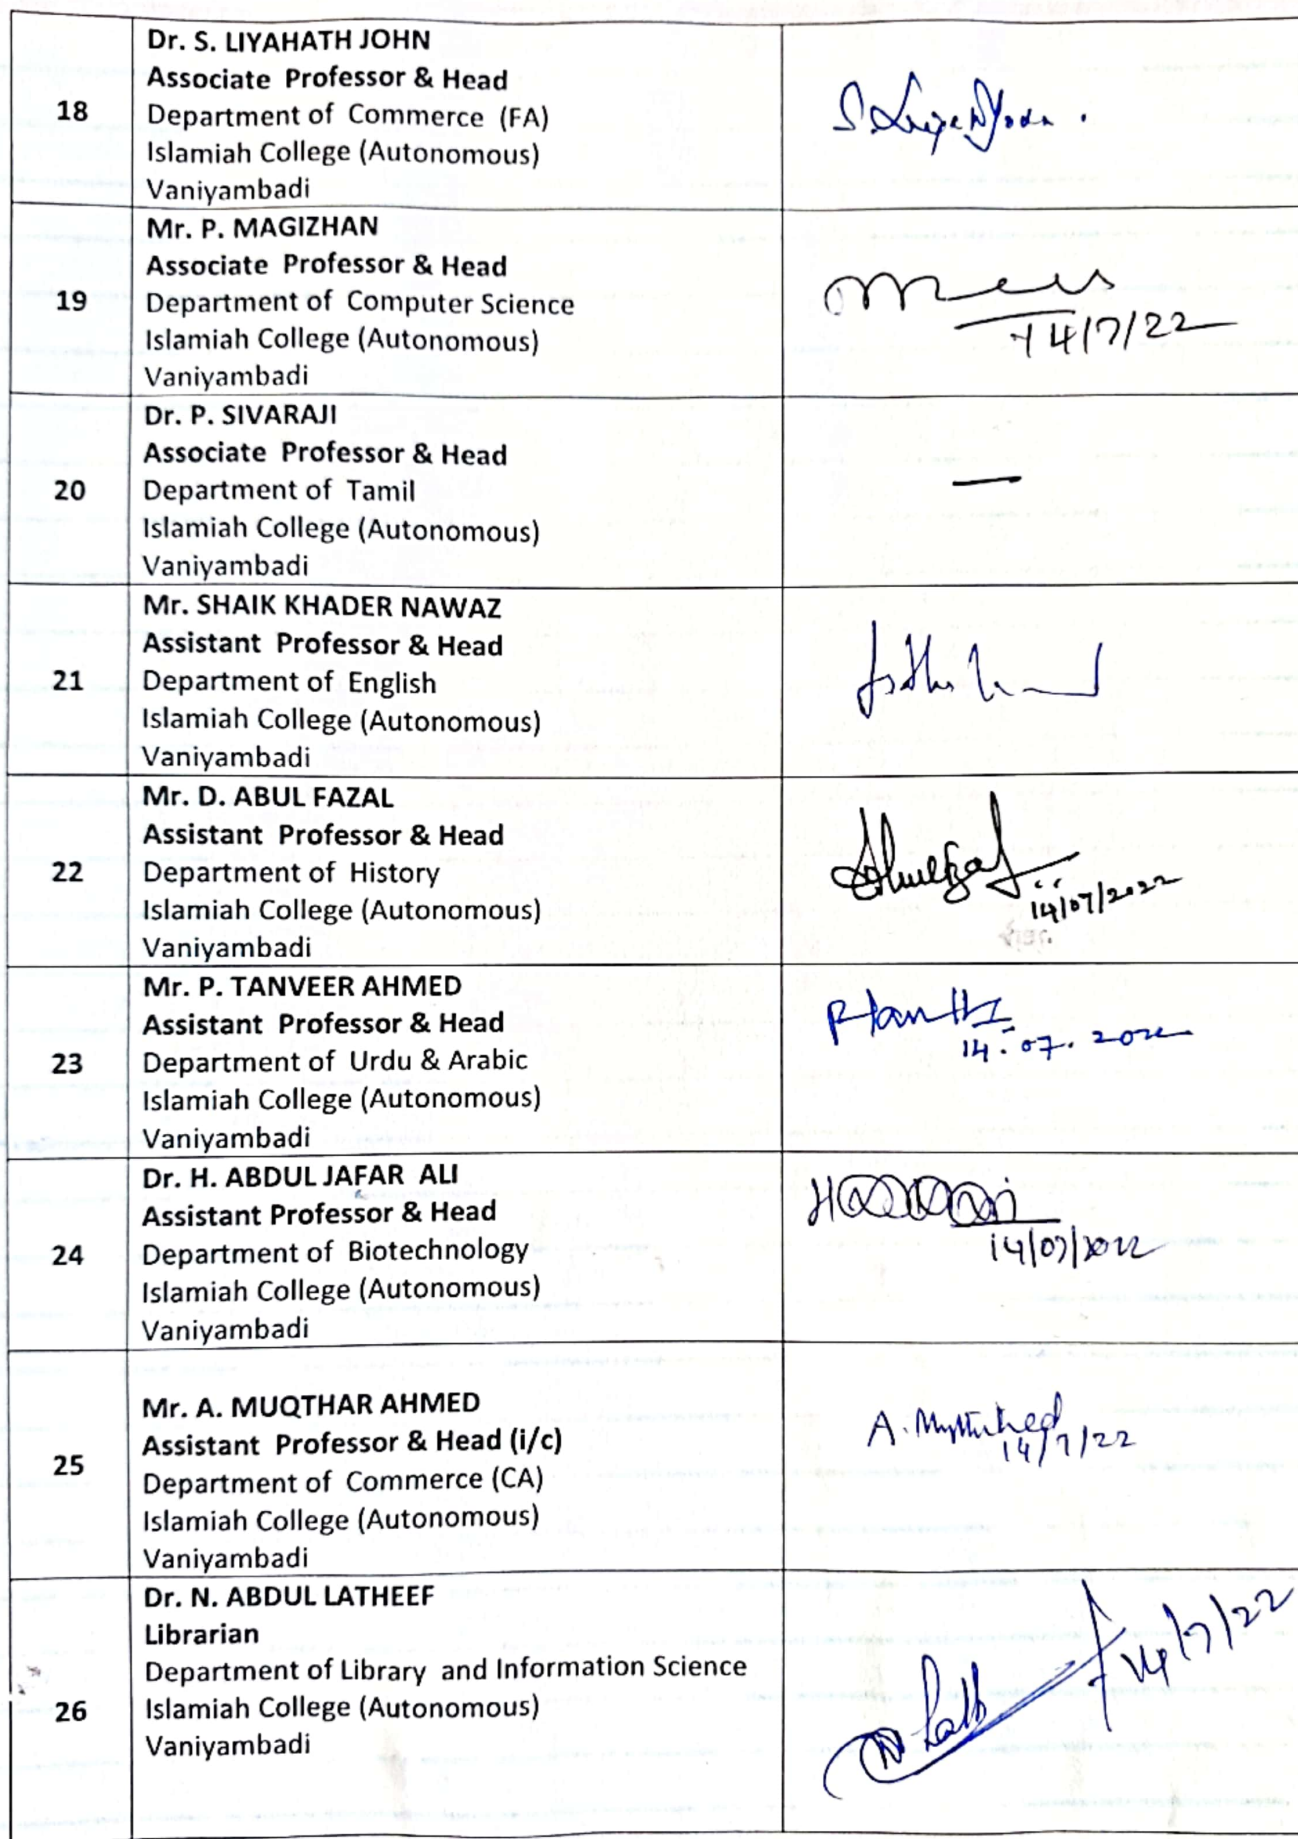 Dr. S. LIYAHATH JOHN
Associate Professor & Head
18
Department of Commerce (FA)
Islamiah College (Autonomous)
Vaniyambadi
Mr. P. MAGIZHAN
Associate Professor & Head
19
Department of Computer Science
Islamiah College (Autonomous)
14/7/22
Vaniyambadi
Dr. P. SIVARAJI
Associate Professor & Head
20
Department of Tamil
—
Islamiah College (Autonomous)
Vaniyambadi
Mr. SHAIK KHADER NAWAZ
Assistant Professor & Head
21
Department of English
Islamiah College (Autonomous)
Vaniyambadi
Mr. D. ABUL FAZAL
Assistant Professor & Head
22
Department of History
Islamiah College (Autonomous)
14/07/2022
Vaniyambadi
Mr. P. TANVEER AHMED
Assistant Professor & Head
14.07.2022
23
Department of Urdu & Arabic
Islamiah College (Autonomous)
Vaniyambadi
Dr. H. ABDUL JAFAR ALI
Assistant Professor & Head
24
Department of Biotechnology
14/07/2022
Islamiah College (Autonomous)
Vaniyambadi
Mr. A. MUQTHAR AHMED
Assistant Professor & Head (i/c)
14/7/22
25
Department of Commerce (CA)
Islamiah College (Autonomous)
Vaniyambadi
Dr. N. ABDUL LATHEEF
Librarian
14/7/22
Department of Library and Information Science
26
Islamiah College (Autonomous)
Vaniyambadi